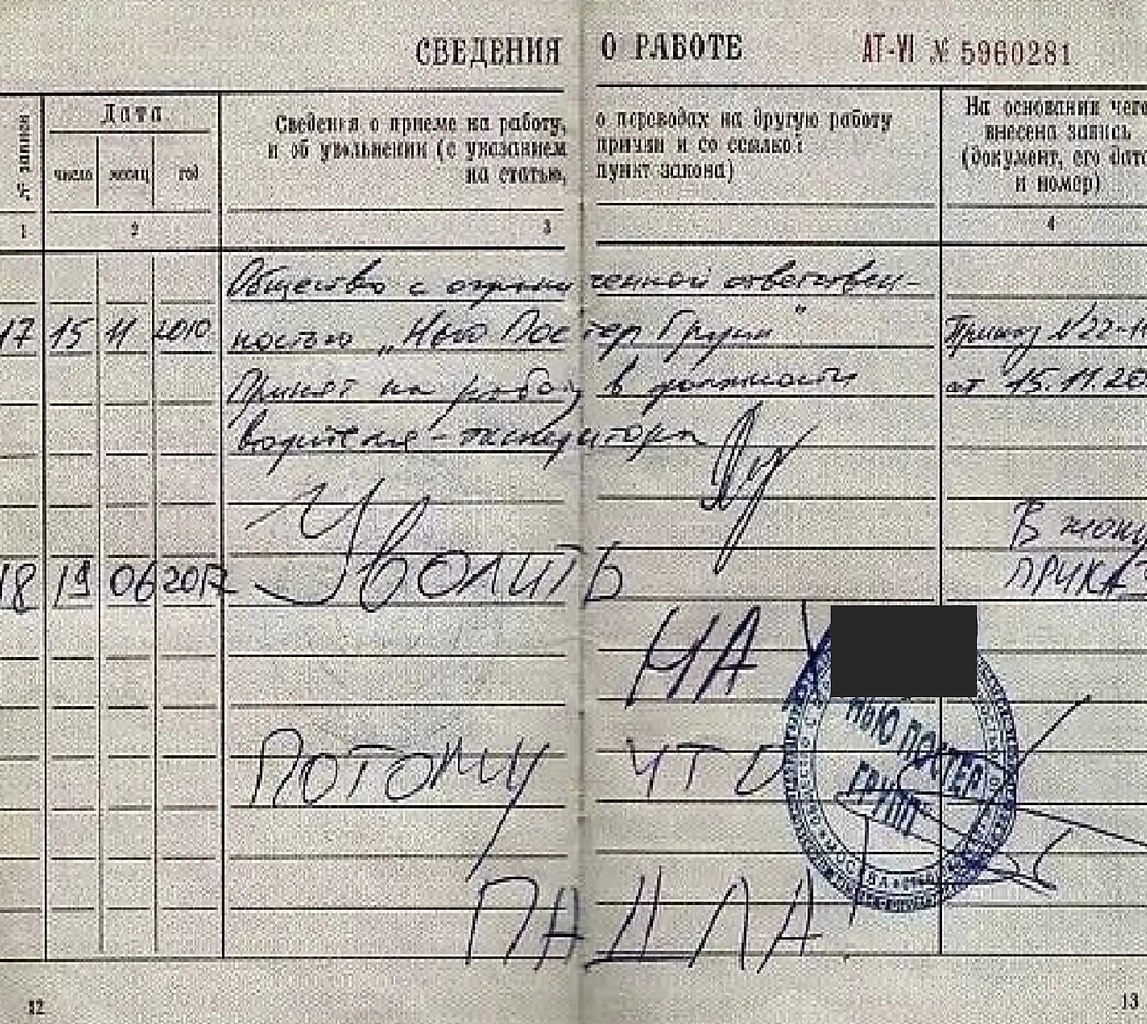 СВЕДЕНИЯ О РАБОТЕ АТ-VI № 5960281
№ записи
Дата
число месяц год
Сведения о приеме на работу, о переводах на другую работу
и об увольнении (с указанием причин и со ссылкой
на статью, пункт закона)
На основании чего
внесена запись
(документ, его дата
и номер)
1 2 3 4
Общество с ограниченной ответствен-
17 15 11 2010 ностью „Нью Постер Групп"
Приказ N22-
Принят на работу в должности
от 15.11.20
водителя-экспедитора
Уволить
В жопу
18 19 06 2017
ПРИКАЗ
НА
ПОТОМУ ЧТО
ПАДЛА
НЬЮ ПОСТЕР
ГРУПП
МОСКВА
12 13